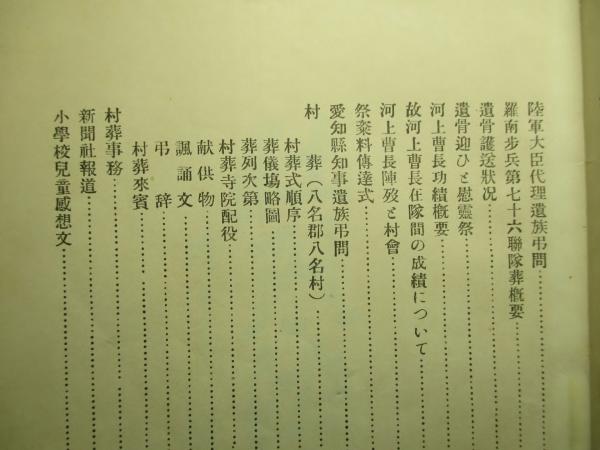 陸軍大臣代理遺族弔問
羅南步兵第七十六聯隊葬概要
遺骨護送狀況
遺骨迎ひと慰靈祭
河上曹長功績概要
故河上曹長在隊間の成績について
河上曹長陣歿と村會
祭粢料傳達式
愛知縣知事遺族弔問
村　葬（八名郡八名村）
村葬式順序
葬儀場略圖
葬列次第
村葬寺院配役
献供物
諷誦文
弔辞
村葬來賓
村葬事務
新聞社報道
小學校兒童感想文